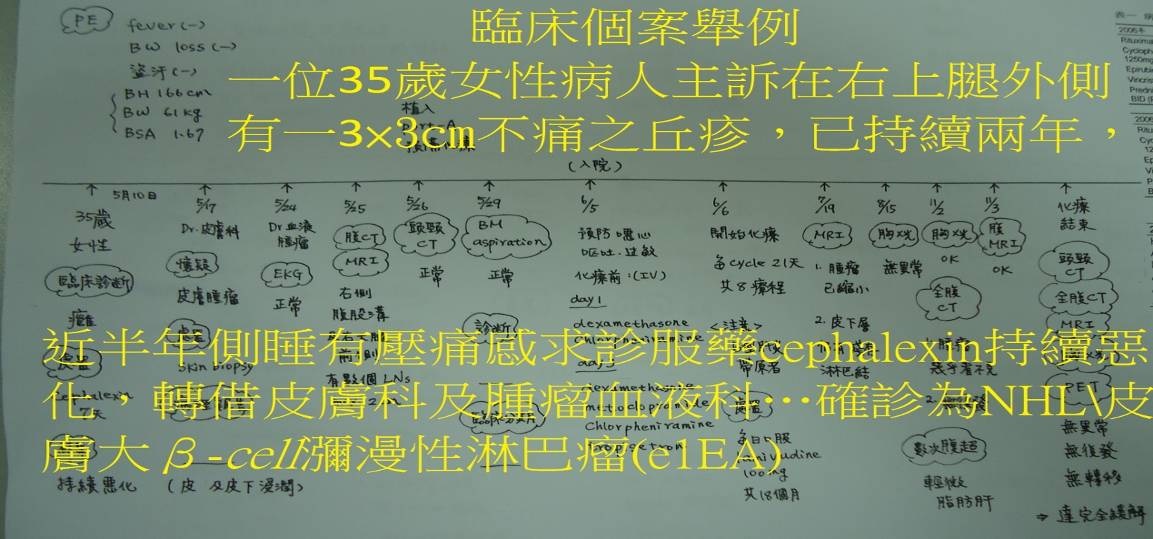 臨床個案舉例
一位35歲女性病人主訴在右上腿外側
有一3×3cm不痛之丘疹，已持續兩年，
近半年側睡有壓痛感求診服藥cephalexin持續惡
化，轉借皮膚科及腫瘤血液科…確診為NHL\皮
膚大β-cell彌漫性淋巴瘤(c1EA)
PE
fever(-)
BW loss(-)
盜汗(-)
BH 166cm
BW 61kg
BSA 1.67
植入
(入院)
5月10日
35歲
女性
臨床診斷
癰
持續惡化
(皮及皮下浸潤)
5/17
Dr.皮膚科
懷疑
皮膚腫瘤
skin biopsy
5/24
Dr血液
腫瘤
EKG
正常
5/25
腹CT
MRI
右側
腹股溝
有數個LNs
5/26
頭頸
CT
正常
5/29
BM
aspiration
正常
診斷
6/5
預防噁心
嘔吐.過敏
化療前:(IV)
day1
dexamethasone
chlorpheniramine
dexamethasone
metoclopramide
Chlorpheniramine
tropisetron
6/6
開始化療
每cycle 21天
共8療程
<注意>
帶原者
每日口服
lamivudine
100mg
共18個月
7/19
MRI
1. 腫瘤
已縮小
2. 皮下層
淋巴結
8/15
胸X光
無異常
11/2
胸X光
OK
全腹
CT
數次腹超
輕微
脂肪肝
11/3
腹
MRI
OK
化療
結束
頭頸
CT
全腹CT
MRI
PET
無異常
無復發
無轉移
⇒ 達完全緩解
表一
2006年